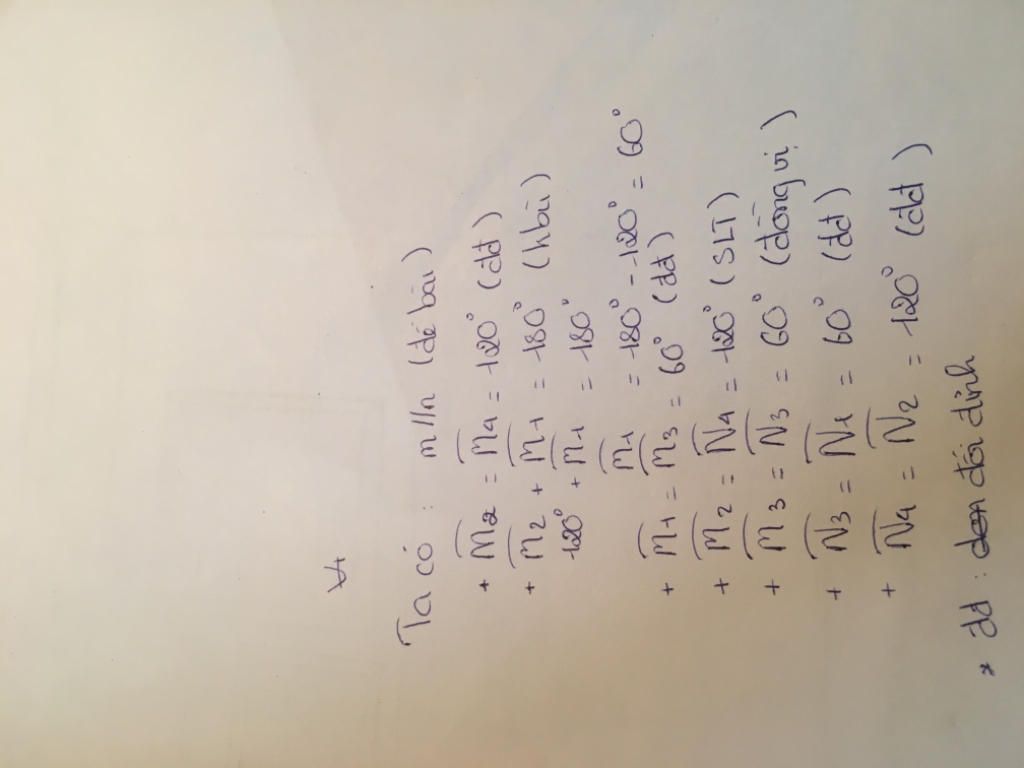 Ta có : m // n (đề bài)
+ M̂2 = M̂4 = 120° (đđ)
+ M̂2 + M̂1 = 180° (kbù)
120° + M̂1 = 180°
M̂1 = 180° - 120° = 60°
+ M̂1 = M̂3 = 60° (đđ)
+ M̂2 = N̂4 = 120° (SLT)
+ M̂3 = N̂3 = 60° (đồng vị)
+ N̂3 = N̂1 = 60° (đđ)
+ N̂4 = N̂2 = 120° (đđ)
* đđ : đối đỉnh